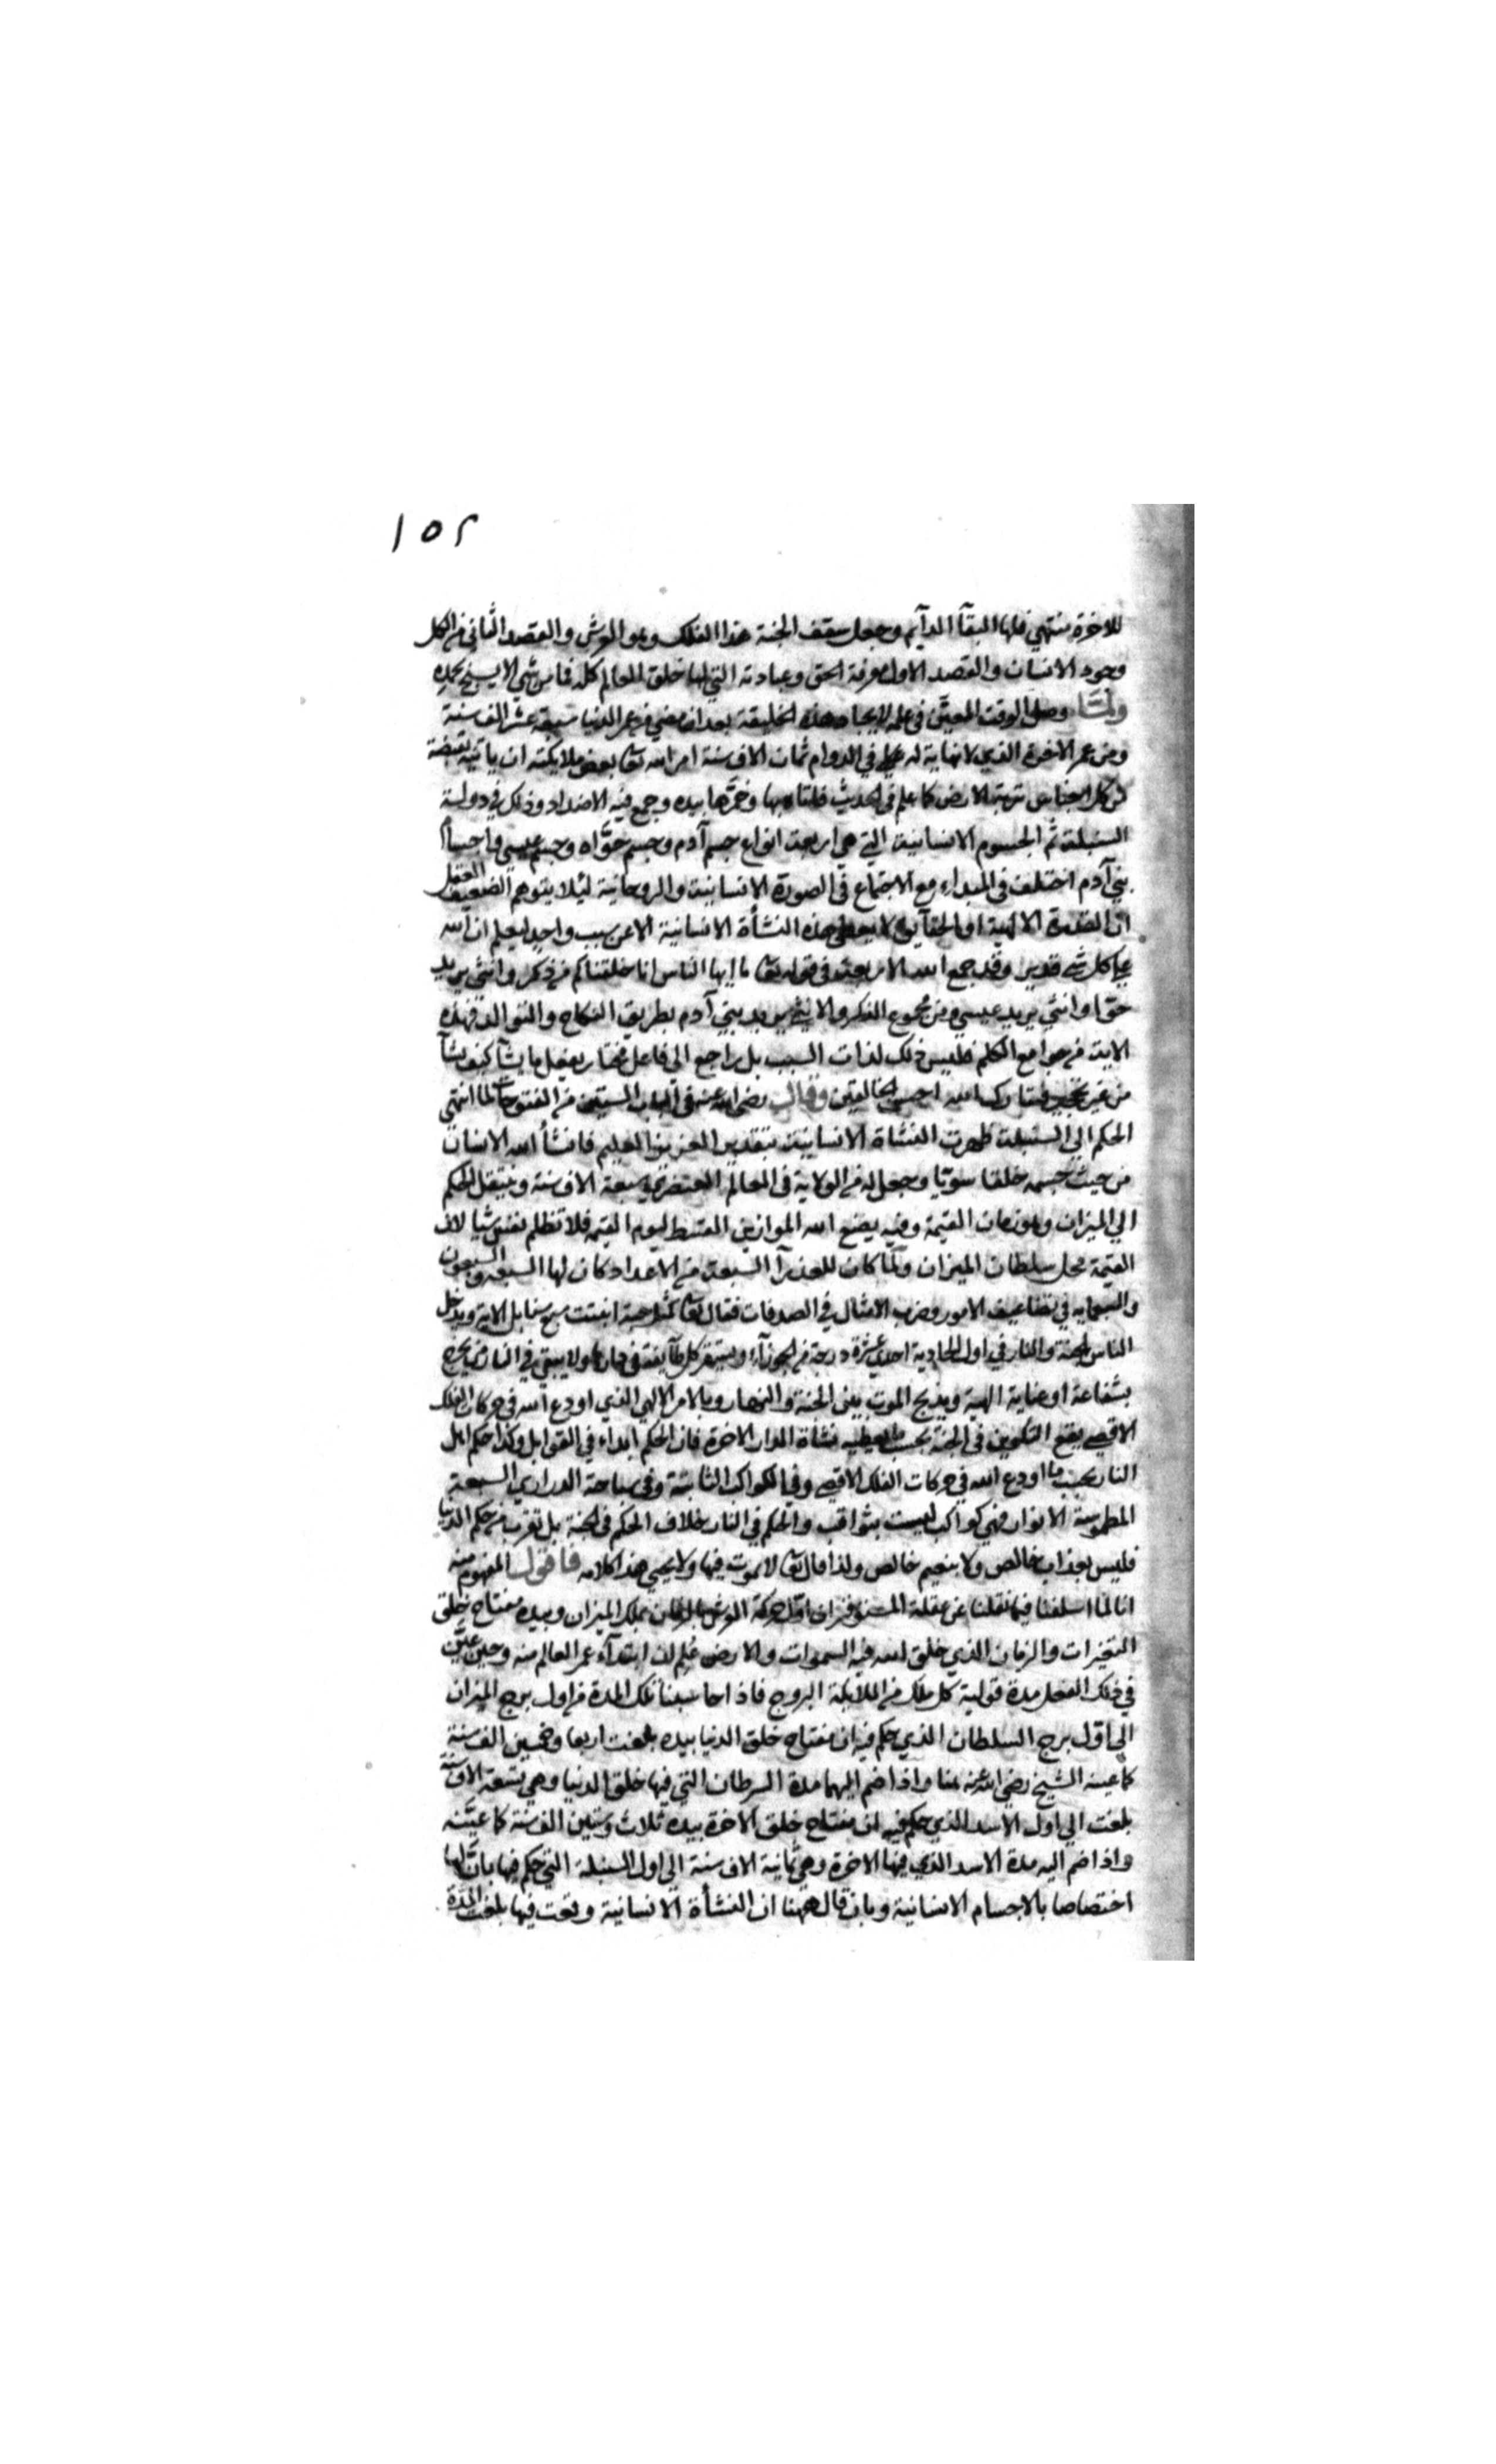 ١٥٢
للاخرة منتهي فلها البقآ الدآيم وجعل سقف الجنة هذا الفلك وهو العرش والقصد الثاني من الكل
وجود الانسان والقصد الاول معرفة الحق وعبادته التي لها خلق العالم كله فما من شي الا يسبح بحمده
ولما وصل الوقت المعين في علمه لايجاد هذه الخليقة بعد ان مضي من عمر الدنيا سبعة عشر الف سنة
ومن عمر الاخرة الذي لا نهاية له في الدوام ثمان الاف سنة امر الله تعا بعض ملايكته ان ياتيه بقبضة
من كل اجناس تربة الارض كما علم في الحديث فاتاه بها وخمرها بيده وجمع فيه الاضداد وذلك في دولة
السنبلة ثم الجسوم الانسانية التي هي اربعة انواع جسم آدم وجسم حوّاء وجسم عيسي واجسام
بني آدم اختلف في المبداء مع الاجتماع في الصورة الانسانية والروحانية ليلا يتوهم الضعيف العقل
ان القدرة الالهية او الحقايق لا يعطي هذه النشأة الانسانية الا عن سبب واحد ليعلم ان الله
علي كل شي قدير وقد جمع الله الاربعة في قوله تعا يا ايها الناس انا خلقناكم من ذكر وانثي يريد
حوا وانثي يريد عيسي ومن مجموع الذكر والانثي يريد بني آدم بطريق النكاح والتوالد فهذه
الاية من جوامع الكلم فليس ذلك لذات السبب بل راجع الي فاعل مختار يفعل ما يشآ كيف يشآ
من غير تحجير فتبارك الله احسن الخالقين وقال رضي الله عنه في الباب الستين من الفتوحات لما انتهي
الحكم الي السنبلة ظهرت النشاة الانسانية بتقدير العزيز العليم فانشأ الله الانسان
من حيث جسمه خلقا سويّا وجعل له من الولاية في العالم العنصري سبعة الاف سنة وينتقل الحكم
الي الميزان وهو زمان القيمة وفيه يضع الله الموازين القسط ليوم القيمة فلا تظلم نفس شيا لان
القيمة محل سلطان الميزان ولما كان للعذرآ السبعة من الاعداد كان لها السبعة والسبعون
والسبعماية في تضاعيف الامور وضرب الامثال في الصدقات فقال تعا كمثل حبة انبتت سبع سنابل الاية ويدخل
الناس الجنة والنار في اول الحادية احدي عشرة درجة من الجوزآء ويستقر كل طآيفة في دارها ولا يبقي في النار من يخرج
بشفاعة او عناية الهية ويذبح الموت بين الجنة والنار وبالامر الالهي الذي اودع الله في حركات الفلك
الاقصي يقع التكوين في الجنة بحسب ما يعطيه نشاة الدار الاخرة فان الحكم ابداء في القوابل وكذا حكم اهل
النار بحسب ما اودع الله في حركات الفلك الاقصي وفي الكواكب الثابتة وفي سباحة الدراري السبعة
المطموسة الانوار فهي كواكب ليست بثواقب والحكم في النار خلاف الحكم في الجنة بل تقرب من حكم الدنيا
فليس بعذاب خالص ولا بنعيم خالص ولذا قال تعا لا يموت فيها ولا يحيي هذا كلامه فاقول المفهوم منه
انا لما اسلفنا فيما نقلنا عن عقلة المستوفز ان اول حركة العرش بالزمان بملك الميزان وبيده مفتاح خلق
المتغيرات والزمان الذي خلق الله فيه السموات والارض عُلم ان ابتدآء عمر العالم منه وحين عيّن
في ذلك الفصل مدة تولية كل ملك من الملايكة البروج فاذا حاسبنا تلك المدة من اول برج الميزان
الي اول برج السلطان الذي حكم فيه ان مفتاح خلق الدنيا بيده بلغت اربعا وخمسين الف سنة
كما عينه الشيخ رضي الله عنه هنا واذا ضم اليهما مدة السرطان التي فيها خلق الدنيا وهي تسعة الاف سنة
بلغت الي اول الاسد الذي حكم فيه ان مفتاح خلق الاخرة بيده ثلاث وستين الف سنة كما عيّنه
واذا ضم اليه مدة الاسد الذي فيها الاخرة وهي ثمانية الاف سنة الي اول السنبلة التي حكم فيها بان لها
اختصاصا بالاجسام الانسانية وبان قال ههنا ان النشأة الانسانية وقعت فيها بلغت المدة